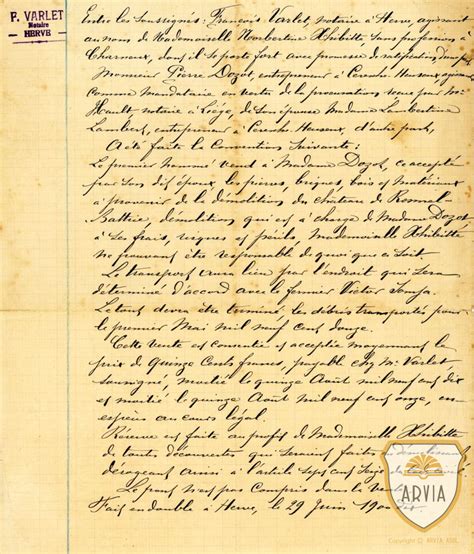 F. VARLET
Notaire
HERVE
Entre les Soussignés: François Varlet, notaire à Herve, agissant
au noms de Mademoiselle Norbertine Xhibitte, sans profession, à
Charneux, dont il se porte fort avec promesse de ratification, d'une part
Monsieur Pierre Dozot, entrepreneur à Cerexhe-Heuseux, agissant
comme mandataire en vertu de la procuration reçue par Me
Hault notaire à Liège, de son épouse Madame Lambertine
Lambert, entrepreneur à Cerexhe Heuseux, d'autre part,
A été faite la Convention Suivante:
Le premier nommé vend à Madame Dozot, ce accepté
par son dit époux, les pierres, briques, bois et matériaux
à provenir de la démolition du château de
Battice, démolition qui est à charge de Madame Dozot
à ses frais, risques et périls, Mademoiselle Xhibitte
ne pouvant être responsable de quoi que ce soit.
Le transport aura lieu par l'endroit qui sera
déterminé d'accord avec le fermier Victor
Le tout devra être terminé, les débris transportés pour
le premier Mai mil neuf cent douze.
Cette vente est consentie et acceptée moyennant le
prix de Quinze Cents francs, payable chez Me Varlet
soussigné, moitié le quinze Août mil neuf cent dix
et moitié le quinze Août mil neuf cent onze, en
espèces au cours légal.
Réserve est faite au profit de Mademoiselle Xhibitte
de toute découverte qui seraient faite
dérogeant ainsi à l'article sept cent seize du code civil.
Le pavé n'est pas compris dans la vente
Fait en double à Herve, le 29 Juin 19
ARVIA
Copyright © ARVIA ASBL